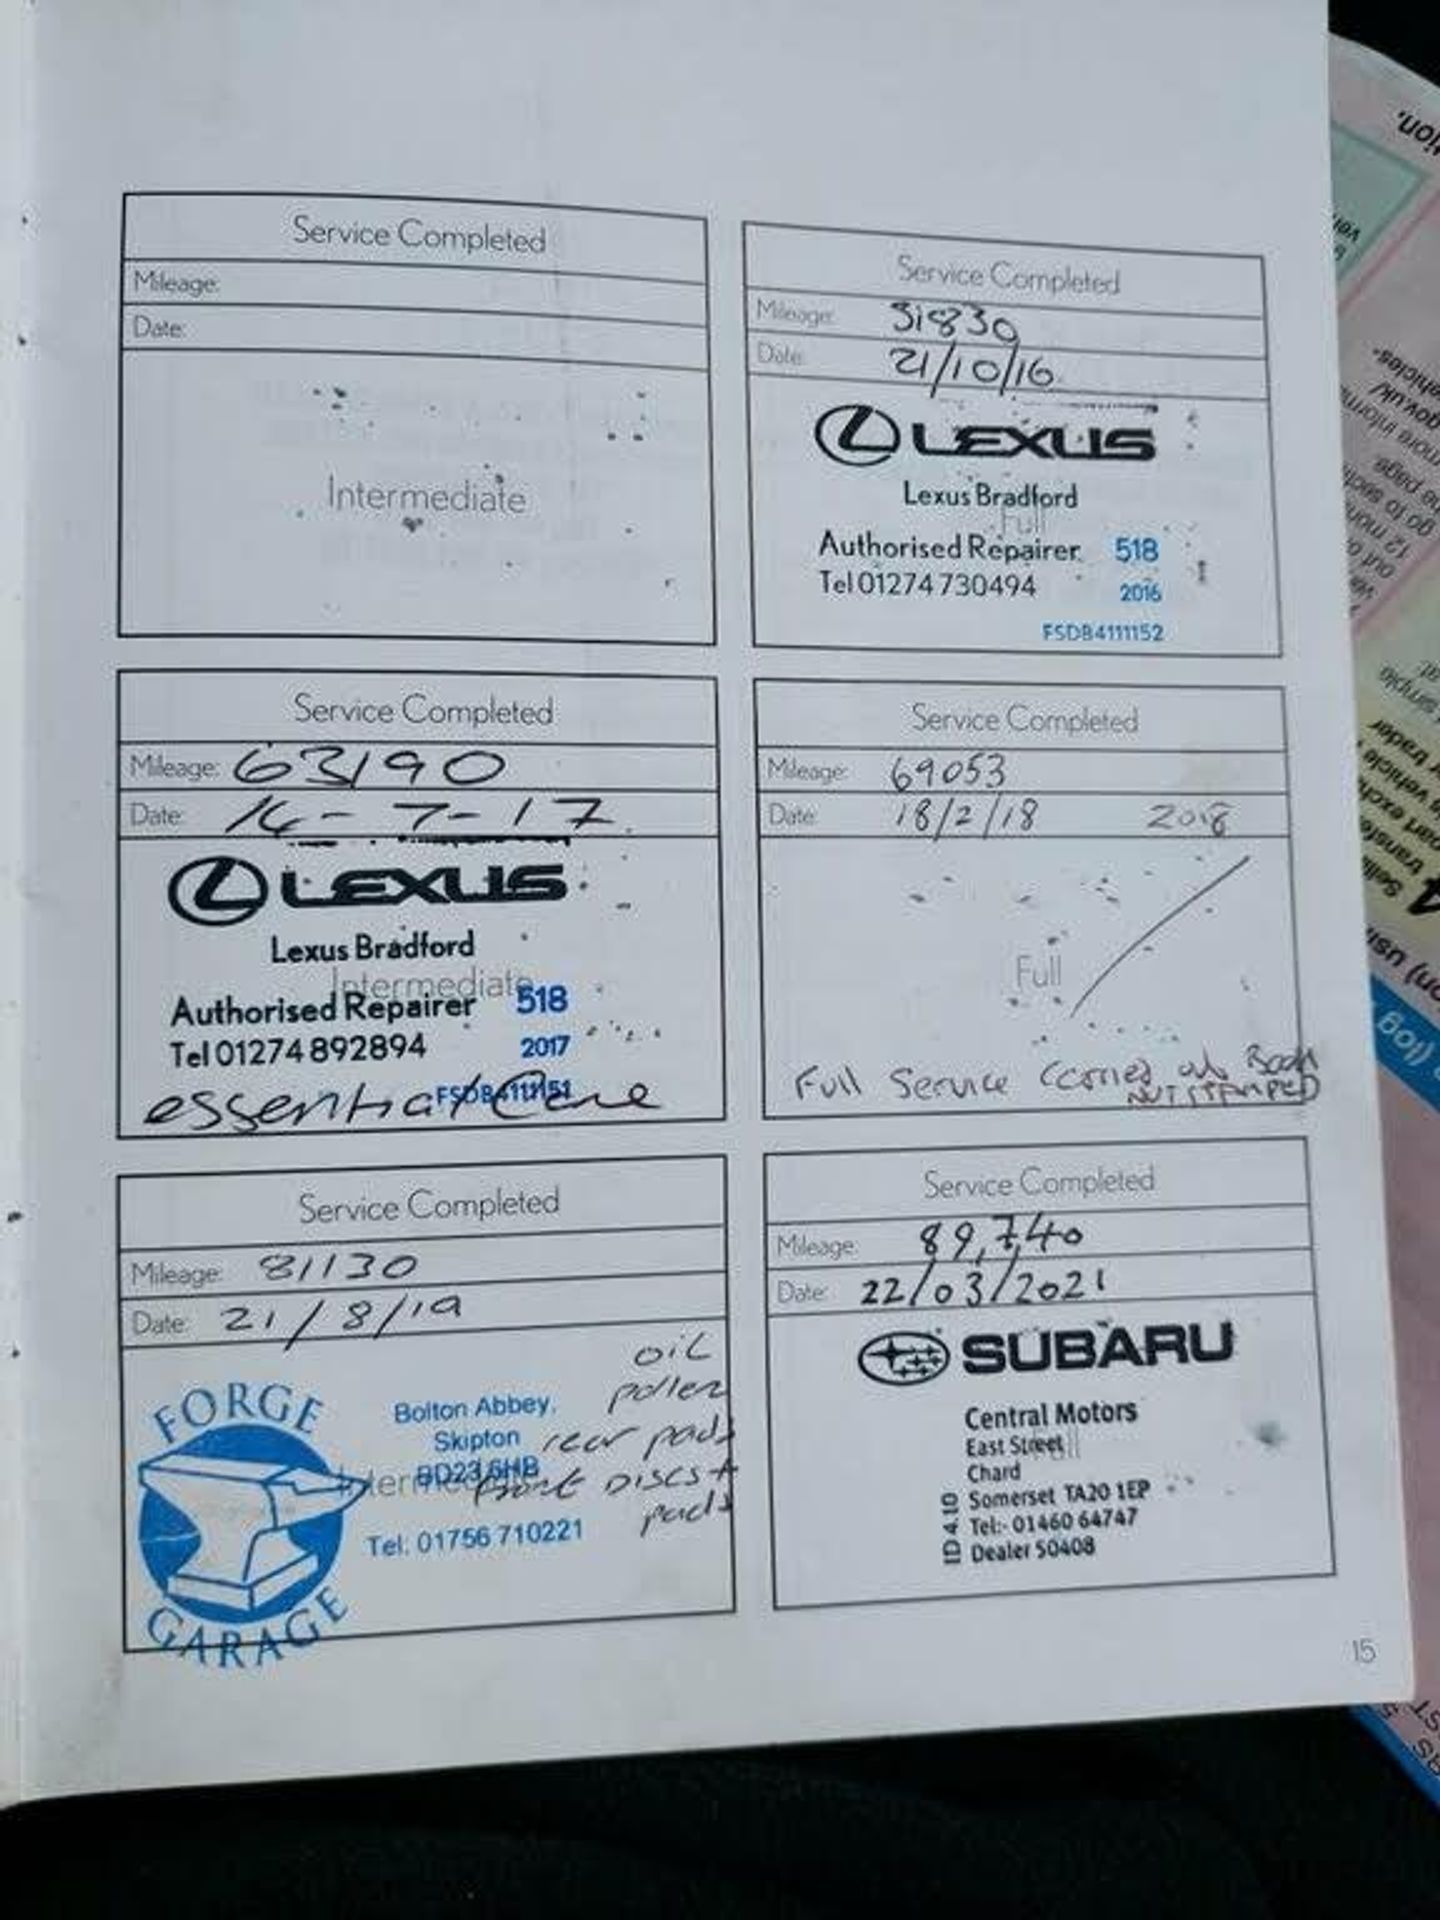 Service Completed
Mileage:
Date:
Intermediate
Service Completed
Mileage: 51830
Date: 21/10/16
LEXUS
Lexus Bradford
Full
Authorised Repairer 518
Tel 01274 730494 2016
FSDB4111152
Service Completed
Mileage: 63190
Date: 14-7-17
LEXUS
Lexus Bradford
Intermediate
Authorised Repairer 518
Tel 01274 892894 2017
FSDB4111151
essential Care
Service Completed
Mileage: 69053
Date: 18/2/18 2018
Full
Full Service Carried out Book
NOT STAMPED
Service Completed
Mileage: 81130
Date: 21/8/19
FORGE
GARAGE
Bolton Abbey,
Skipton
BD23 6HB
Intermediate
Tel: 01756 710221
oil
pollen
rear pads
front DISCS +
pads
Service Completed
Mileage: 89,740
Date: 22/03/2021
SUBARU
Central Motors
East Street
Full
Chard
Somerset TA20 1EP
Tel:- 01460 64747
Dealer 50408
ID 4.10
15
tion.
gov.uk/
vehicles-
more inform
go to secti
12 mon
out o
sample
r trader
vehicle
part exch
transfe
Selli
4